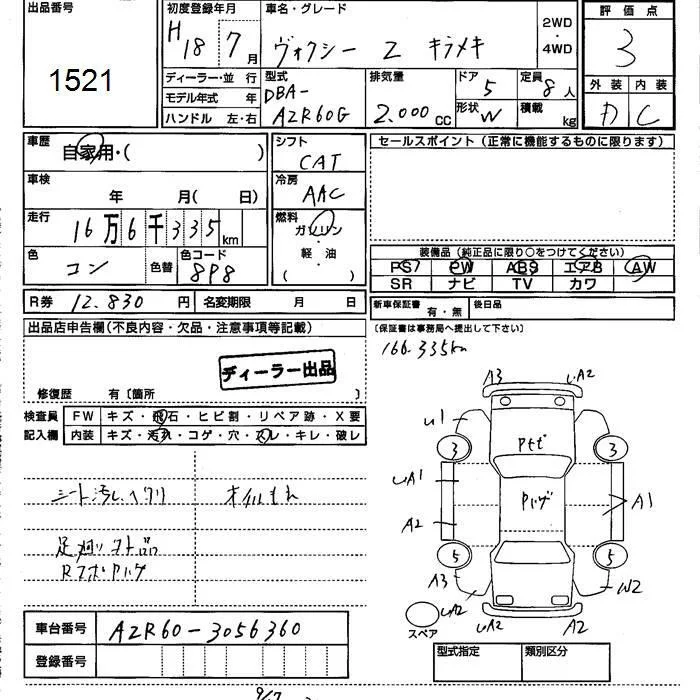 出品番号
1521
初度登録年月
H18 7月
車名・グレード
ヴォクシー Z キラメキ
2WD・4WD
評価点
3
ディーラー・並行
モデル年式 年
ハンドル 左・右
型式
DBA-AZR60G
排気量
2.000cc
ドア
5
形状
W
定員
8人
積載
kg
外装 内装
D C
車歴
自家用・( )
車検
年 月( 日)
走行
16万6千335km
色
コン
色替
色コード
8P8
シフト
CAT
冷房
AAC
燃料
ガソリン・軽油
( )
セールスポイント(正常に機能するものに限ります)
装備品(純正品に限り○をつけてください)
PS PW ABS エアB AW
SR ナビ TV カワ
R券 12.830円
名変期限 月 日
新車保証書 有・無
後日品
(保証書は事務局へ提出して下さい)
166.335km
出品店申告欄(不良内容・欠品・注意事項等記載)
ディーラー出品
修復歴 有〔箇所 〕
検査員記入欄
FW キズ・飛石・ヒビ割・リペア跡・X要
内装 キズ・汚れ・コゲ・穴・スレ・キレ・破レ
シート汚し、ヘタリ
オイルもれ
足廻り
A3 A2
U1
3 3
A1 A1
A2
5 5
A3 W2
UA2
UA2 A2
スペア
車台番号 AZR60-3056360
登録番号
型式指定 類別区分